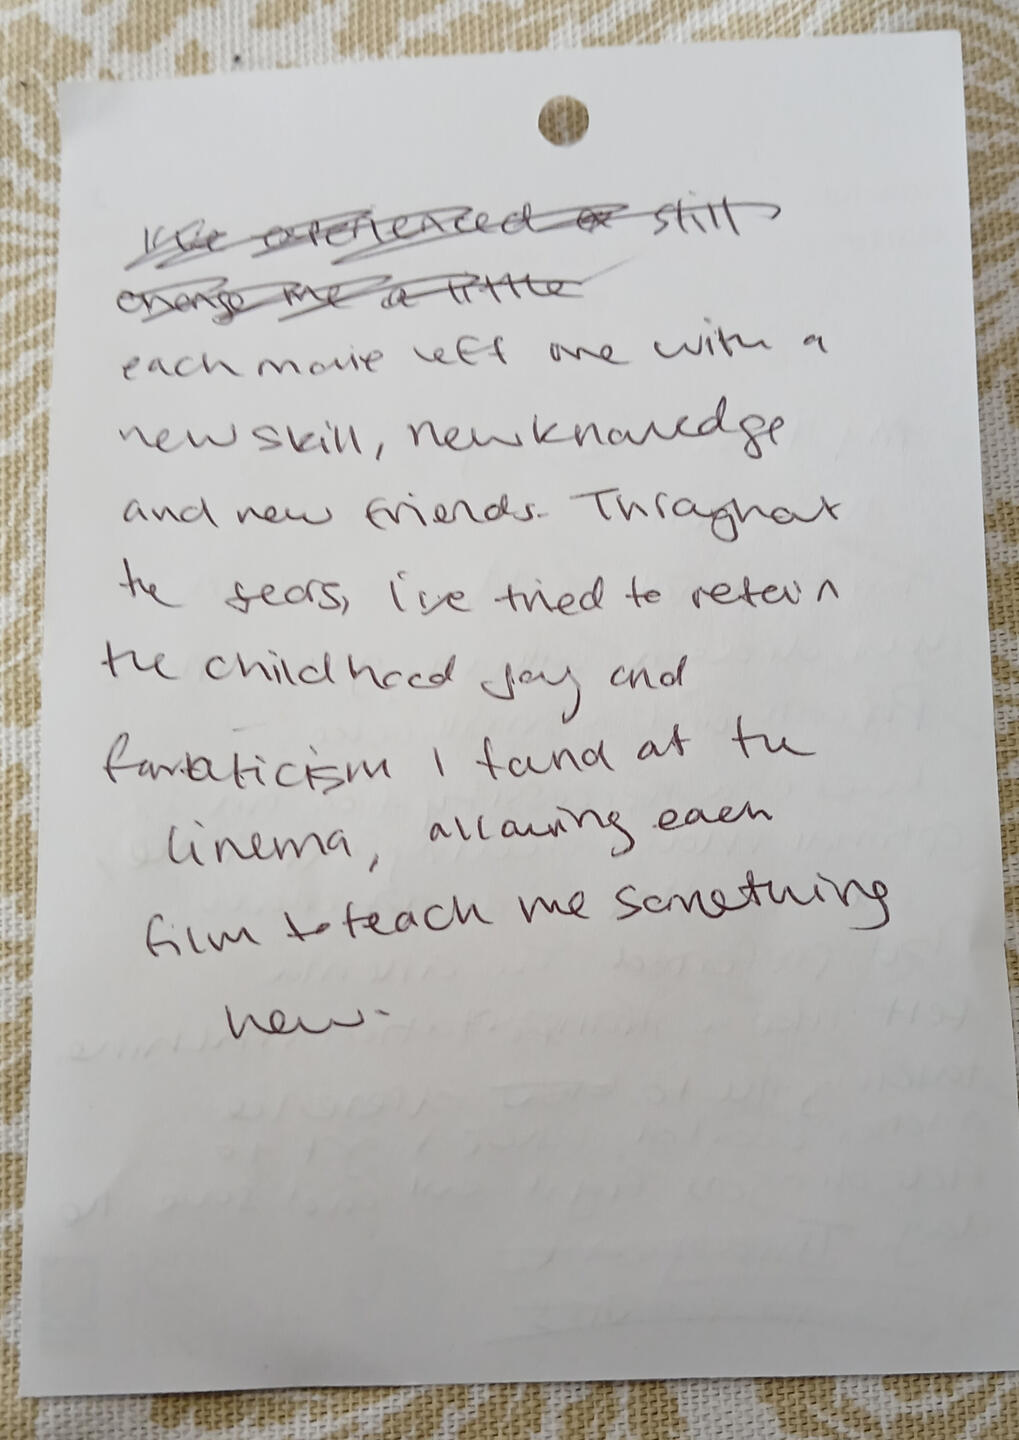 I've experienced or still
change me a little
each movie left me with a
new skill, new knowledge
and new friends. Throughout
the years, I've tried to retain
the childhood joy and
fanaticism I found at the
cinema, allowing each
film to teach me something
new.